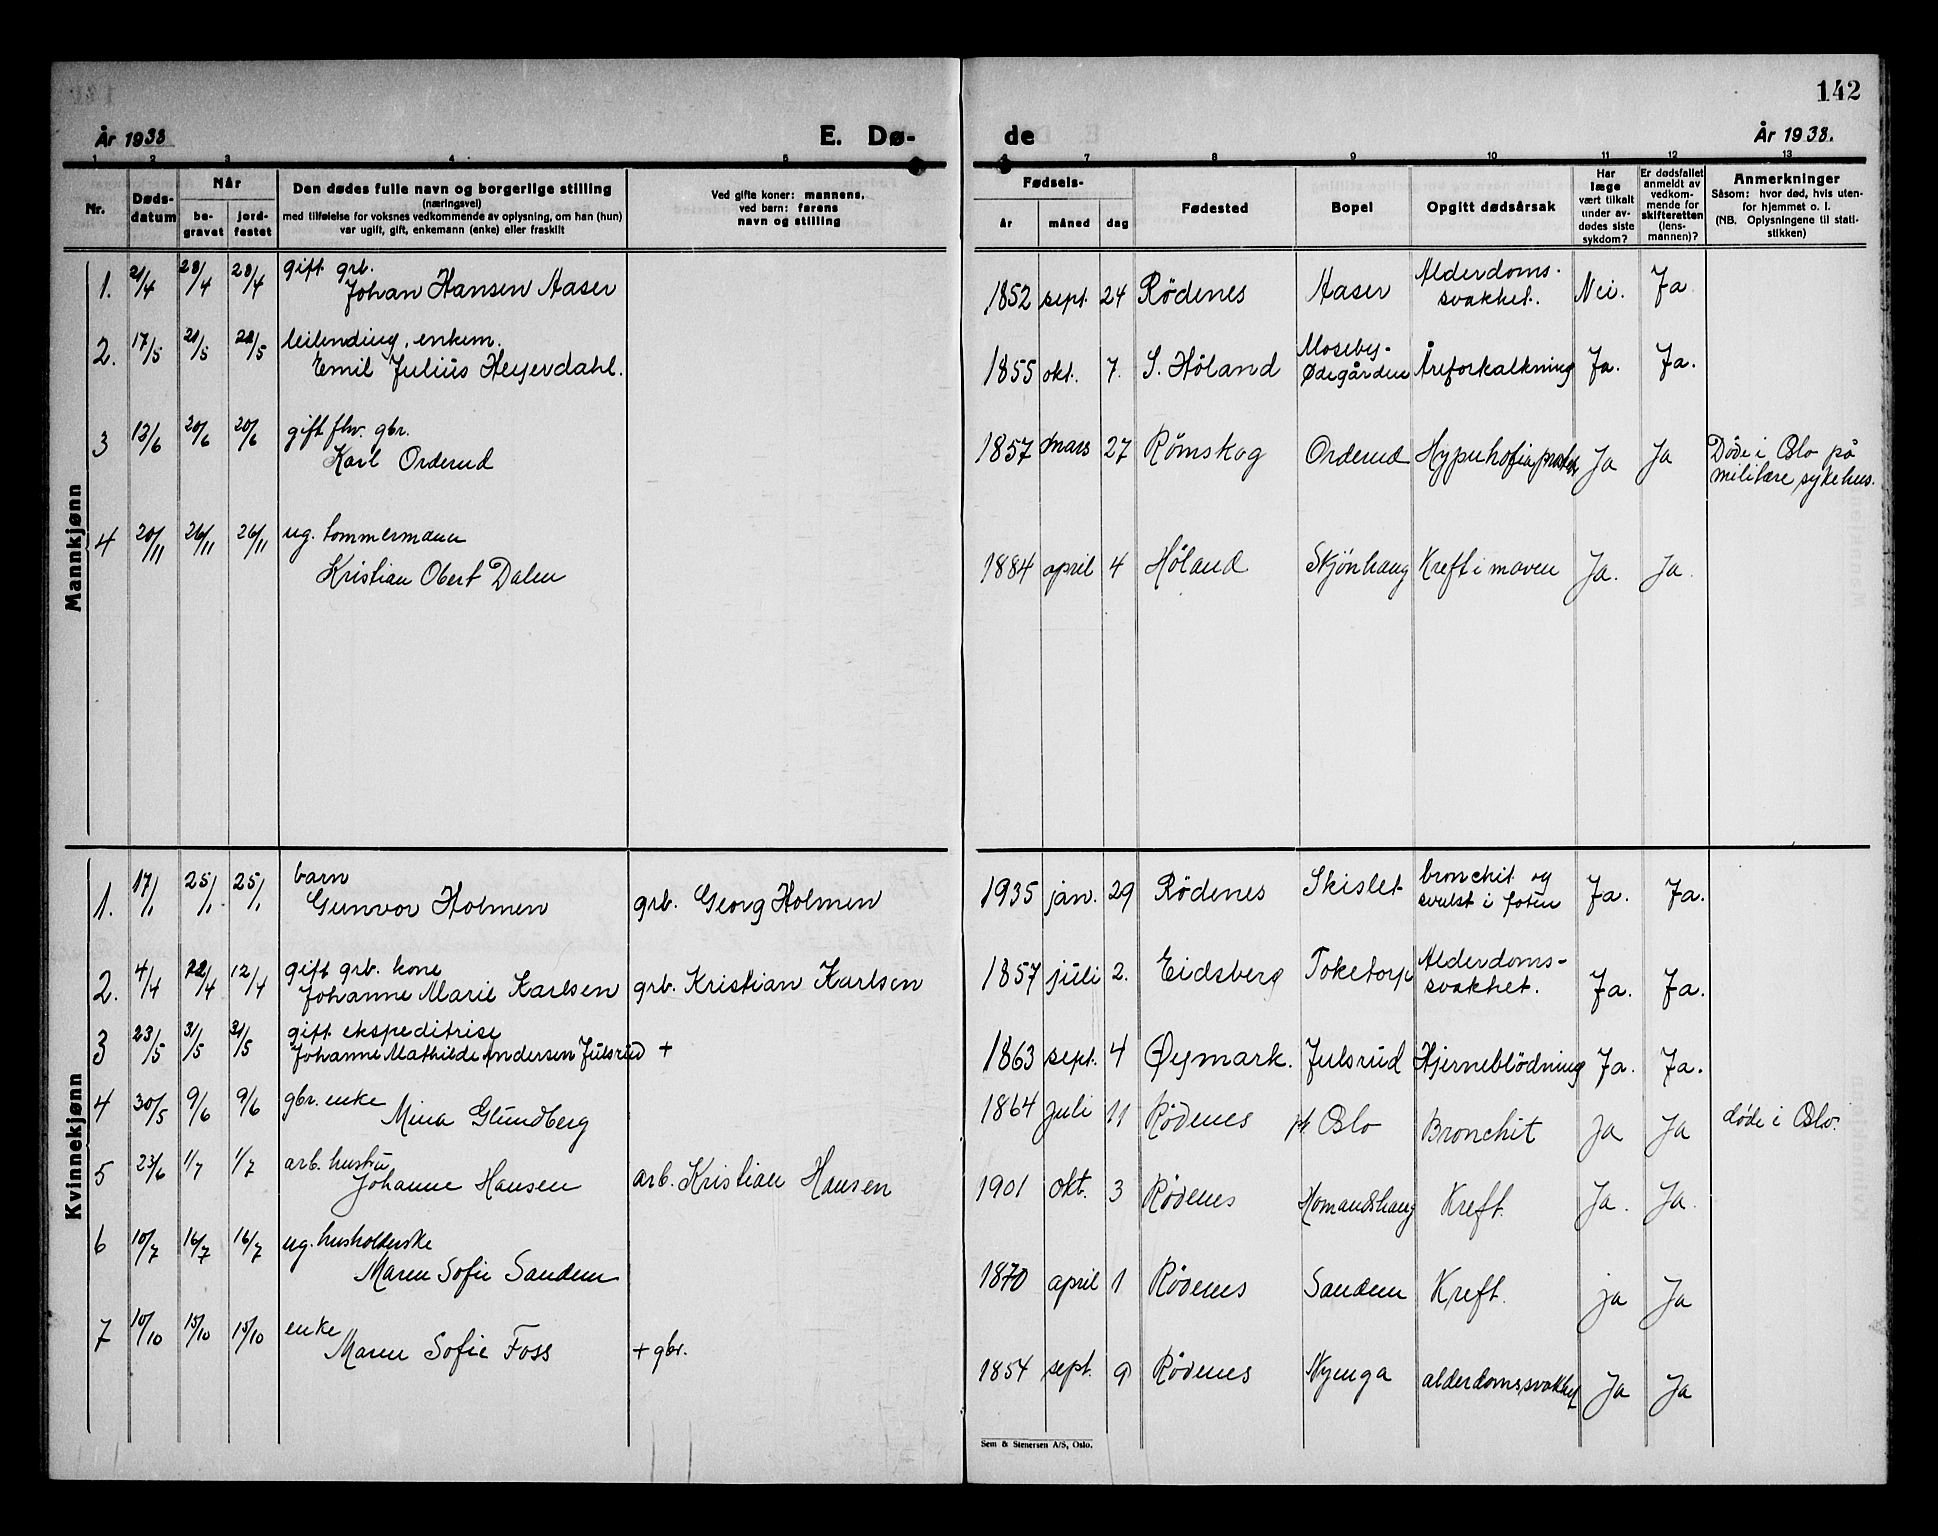 142
År 1938
E. Dø-
de
År 1938.
1 2 3 4 5 7 8 9 10 11 12 13
Nr.
Døds-
datum
Når
be-
gravet
jord-
festet
Den dødes fulle navn og borgerlige stilling
(næringsvei)
med tilføielse for voksnes vedkommende av oplysning, om han (hun)
var ugift, gift, enkemann (enke) eller fraskilt
Ved gifte koner: mannens,
ved barn: farens
navn og stilling
Fødsels-
år måned dag
Fødested
Bopel
Opgitt dødsårsak
Har
læge
vært tilkalt
under av-
dødes siste
sykdom?
Er dødsfallet
anmeldt av
vedkom-
mende for
skifteretten
(lens-
mannen)?
Anmerkninger
Såsom: hvor død, hvis uten-
for hjemmet o. l.
(NB. Oplysningene til stati-
stikken)
Mannkjønn
gift grb.
1. 21/4 28/4 28/4 Johan Hansen Aaser 1852 sept. 24 Rödenes Aaser Alderdoms-
svakhet. Nei. Ja
leilending, enkem.
2. 17/5 21/5 Emil Julius Heyerdahl. 1855 okt. 7. S. Höland Moseby-
Ødegården Åreforkalkning Ja. Ja.
gift fhv. gbr.
3 13/6 20/6 20/6 Karl Orderud 1857 mars 27 Römskog Orderud Ja Ja Döde i Oslo på
militære sykehus.
ug. tommermann
4 20/11 26/11 26/11 Kristian Obert Dalen 1884 april 4 Höland Skjönhaug Kreft i maven Ja. Ja.
Kvinnekjønn
barn
1. 17/1 25/1 25/1 Gunvor Holmen grb. Georg Holmen 1935 jan. 29 Rödenes Skislet bronchit og
svulst i foten Ja. Ja.
gift grb. kone
2. 4/4 12/4 Johanne Marie Karlsen grb. Kristian Karlsen 1857 juli 2. Eidsberg Toketorp Alderdoms-
svakhet. Ja. Ja.
gift ekspeditrise
3 23/5 31/5 31/5 Johanne Mathilde Andersen Julsrud + 1863 sept. 4 Öymark. Julsrud Hjerneblödning Ja. Ja.
gbr. enke
4 30/5 9/6 9/6 Mina Glundberg 1864 juli 11 Rödenes Oslo Bronchit Ja Ja döde i Oslo.
arb. hustru
5 23/6 1/7 1/7 Johanne Hansen arb. Kristian Hansen 1901 okt. 3 Rödenes Homandshaug Kreft. Ja. Ja.
ug. husholderske
6 10/7 16/7 16/7 Maren Sofie Sandem 1870 april 1 Rödenes Sandem Kreft. ja Ja
enke
7 10/10 15/10 15/10 Maren Sofie Foss + gbr. 1854 sept. 9 Rödenes Nyenga alderdomssvakhet Ja Ja
Sem & Stenersen A/S, Oslo.